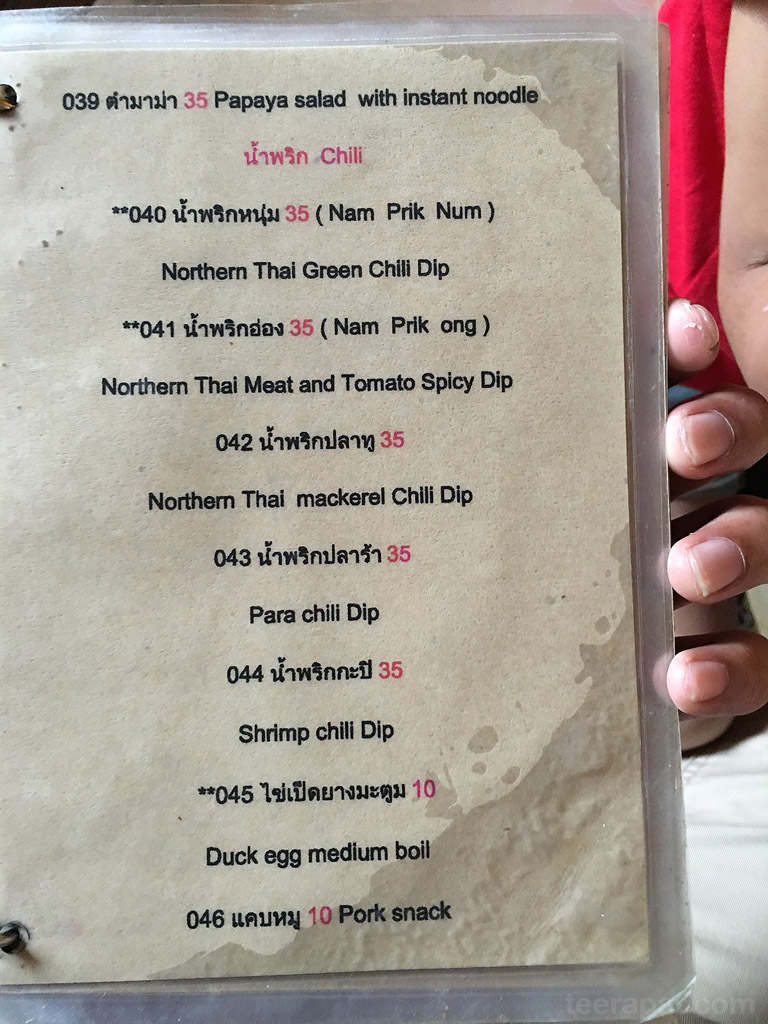 039 ตำมาม่า 35 Papaya salad with instant noodle
น้ำพริก Chili
**040 น้ำพริกหนุ่ม 35 ( Nam Prik Num )
Northern Thai Green Chili Dip
**041 น้ำพริกอ่อง 35 ( Nam Prik ong )
Northern Thai Meat and Tomato Spicy Dip
042 น้ำพริกปลาทู 35
Northern Thai mackerel Chili Dip
043 น้ำพริกปลาร้า 35
Para chili Dip
044 น้ำพริกกะปิ 35
Shrimp chili Dip
**045 ไข่เป็ดยางมะตูม 10
Duck egg medium boil
046 แคบหมู 10 Pork snack